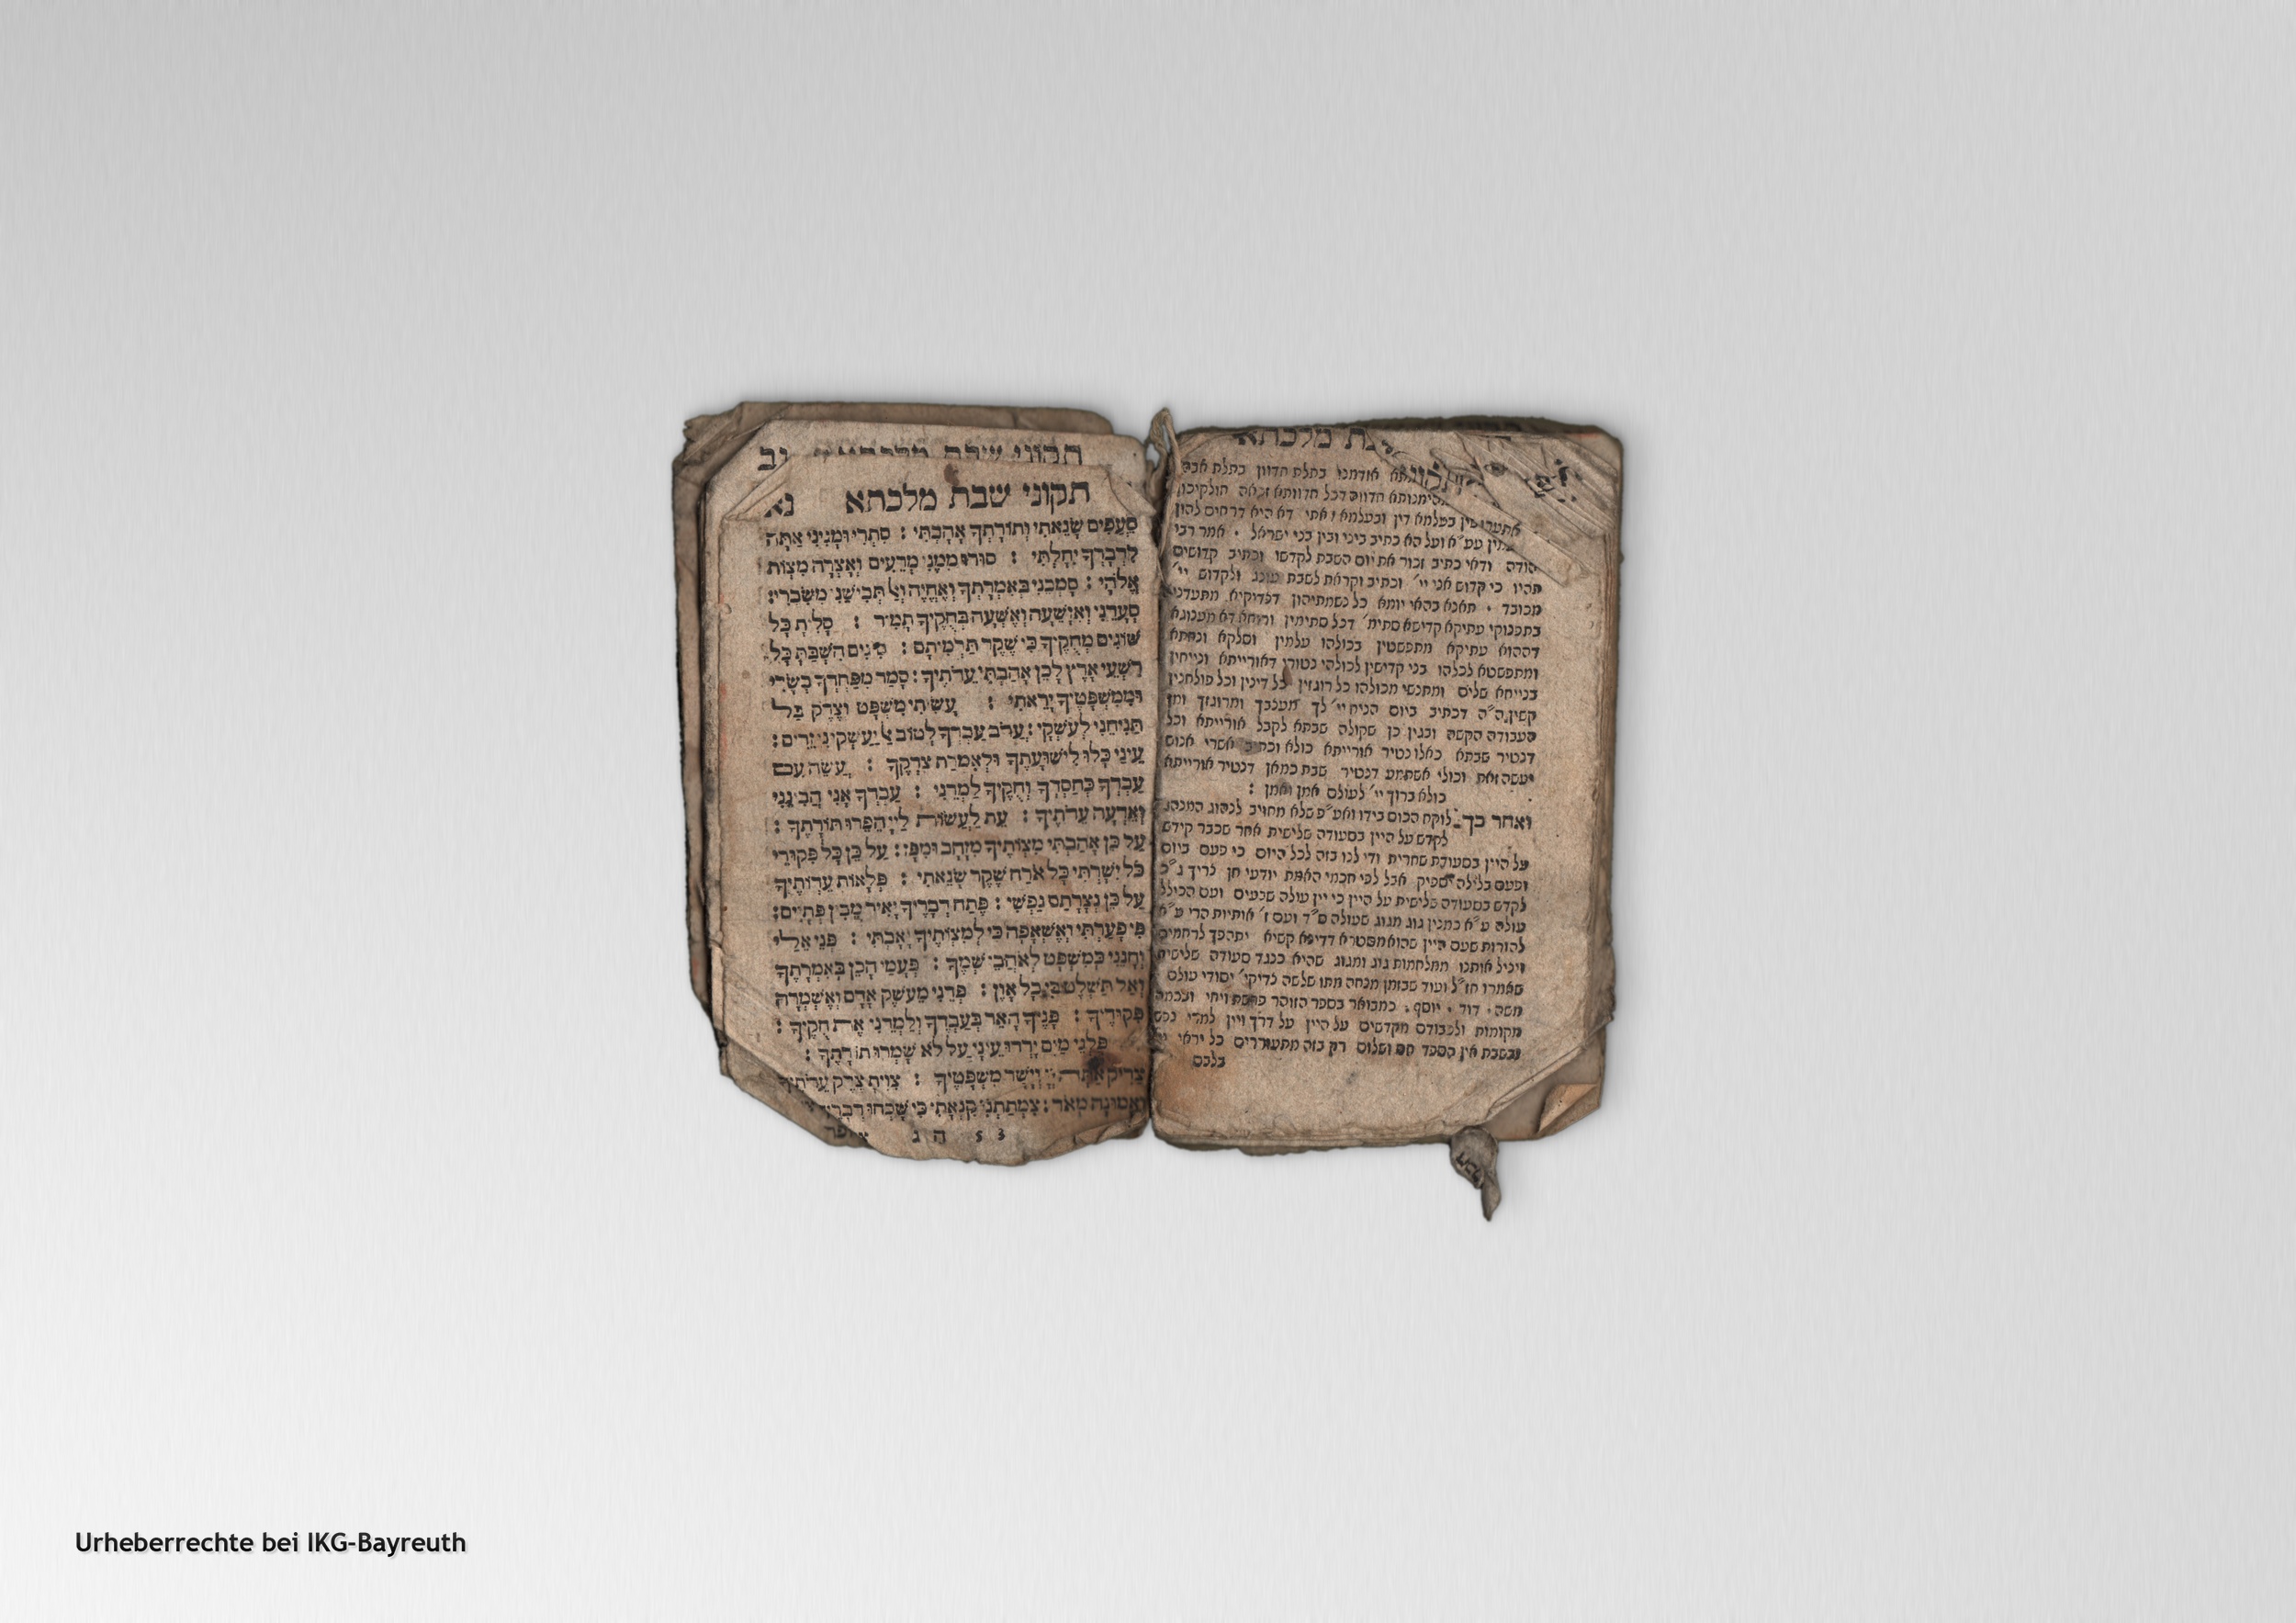 תקוני שבת מלכתא
סֵעֲפִים שָׂנֵאתִי וְתוֹרָתְךָ אָהָבְתִּי : סִתְרִי וּמָגִינִּי אַתָּה
לִדְבָרְךָ יִחָלְתִּי : סוּרוּ מִמֶּנִּי מְרֵעִים וְאֶצְּרָה מִצְוֹת
אֱלֹהָי : סָמְכֵנִי כְּאִמְרָתְךָ וְאֶחְיֶה וְאַל תְּבִישֵׁנִי מִשִּׂבְרִי :
סְעָדֵנִי וְאִוָּשֵׁעָה וְאֶשְׁעָה בְחֻקֶּיךָ תָמִיד : סָלִיתָ כָּל
שׁוֹגִים מֵחֻקֶּיךָ כִּי שֶׁקֶר תַּרְמִיתָם : סִגִים הִשְׁבַּתָּ כָל
רִשְׁעֵי אָרֶץ לָכֵן אָהַבְתִּי עֵדֹתֶיךָ : סָמַר מִפַּחְדְּךָ בְשָׂרִי
וּמִמִּשְׁפָּטֶיךָ יָרֵאתִי : עָשִׂיתִי מִשְׁפָּט וָצֶדֶק בַּל
תַּנִּיחֵנִי לְעֹשְׁקָי : עֲרֹב עַבְדְּךָ לְטוֹב אַל יַעַשְׁקֻנִי זֵדִים :
עֵינַי כָּלוּ לִישׁוּעָתֶךָ וּלְאִמְרַת צִדְקֶךָ : עֲשֵׂה עִם
עַבְדְּךָ כְחַסְדֶּךָ וְחֻקֶּיךָ לַמְּדֵנִי : עַבְדְּךָ אָנִי הֲבִינֵנִי
וְאֵדְעָה עֵדֹתֶיךָ : עֵת לַעֲשׂוֹת לַיְיָ הֵפֵרוּ תּוֹרָתֶךָ :
עַל כֵּן אָהַבְתִּי מִצְוֹתֶיךָ מִזָּהָב וּמִפָּז : עַל כֵּן כָּל פִּקּוּדֵי
כֹל יִשָּׁרְתִּי כָּל אֹרַח שֶׁקֶר שָׂנֵאתִי : פְּלָאוֹת עֵדְוֹתֶיךָ
עַל כֵּן נְצָרָתַם נַפְשִׁי : פֵּתַח דְּבָרֶיךָ יָאִיר מֵבִין פְּתָיִים :
פִּי פָעַרְתִּי וָאֶשְׁאָפָה כִּי לְמִצְוֹתֶיךָ יָאָבְתִּי : פְּנֵה אֵלַי
וְחָנֵּנִי כְּמִשְׁפָּט לְאֹהֲבֵי שְׁמֶךָ : פְּעָמַי הָכֵן בְּאִמְרָתֶךָ
וְאַל תַּשְׁלֶט בִּי כָל אָוֶן : פְּדֵנִי מֵעֹשֶׁק אָדָם וְאֶשְׁמְרָה
פִּקּוּדֶיךָ : פָּנֶיךָ הָאֵר בְּעַבְדֶּךָ וְלַמְּדֵנִי אֶת חֻקֶּיךָ :
פַּלְגֵי מַיִם יָרְדוּ עֵינָי עַל לֹא שָׁמְרוּ תוֹרָתֶךָ :
צַדִּיק אַתָּה יְיָ וְיָשָׁר מִשְׁפָּטֶיךָ : צִוִּיתָ צֶדֶק עֵדֹתֶיךָ
וֶאֱמוּנָה מְאֹד : צִמְּתַתְנִי קִנְאָתִי כִּי שָׁכְחוּ דְבָרֶיךָ
הודה ודאי כתיב זכור את יום השבת לקדשו וכתיב קדושים
תהיו כי קדוש אני יי׳ וכתיב וקראת לשבת עונג ולקדוש יי׳
מכובד · תאנא בהאי יומא כל נשמתיהון דצדיקיא מתעדני
בתפנוקי עתיקא קדישא סתימ׳ דכל סתימין ורוחא דא מענוגא
דההוא עתיקא מתפשטין בכולהו עלמין וסלקא ונחתא
ומתפשטא לכלהו בני קדישין לכולהי נטורי דאורייתא ונייחין
בנייחא שלים ומתנשי מכולהו כל רוגזין כל דינין וכל פולחנין
קשין ה״ה דכתיב ביום הניח יי׳ לך מעצבך ומרוגזך ומן
העבודה הקשה ובגין כן שקולה שבתא לקבל אורייתא וכל
דנטיר שבתא כאלו נטיר אורייתא כולא וכתיב אשרי אנוש
יעשה זאת וכולי אשתמע דנטיר שבת כמאן דנטיר אורייתא
כולא ברוך יי׳ לעולם אמן ואמן :
ואחר כך לוקח הכוס בידו ואע״פ שלא מחויב לנהוג המנהג
לקדש על היין בסעודה שלישית אחר שכבר קידש
על היין בסעודת שחרית ודי לנו בזה לכל היום כי פעם ביום
ופעם בלילה יספיק אבל לפי חכמי האמת יודעי חן צריך ג״כ
לקדש בסעודה שלישית על היין כי יין עולה שבעים ועם הכולל
עולה ע״א כמנין גוג מגוג שעולה ס״ד ועם ז׳ אותיות הרי ע״א
להורות שעם היין שהוא מסטרא דדינא קשיא יתהפך לרחמים
ויציל אותנו ממלחמות גוג ומגוג שהיא כנגד סעודה שלישית
שאמרו חז״ל ועוד שבזמן מנחה מתו שלשה צדיקי׳ יסודי עולם
משה · דוד · יוסף · כמבואר בספר הזוהר פרשת ויחי ובכמה
מקומות ולכבודם מקדשים על היין על דרך ויין למרי נפש
ובשבת אין הספד חס ושלום רק בזה מתעוררים כל יראי יי׳
בלבם
Urheberrechte bei IKG-Bayreuth